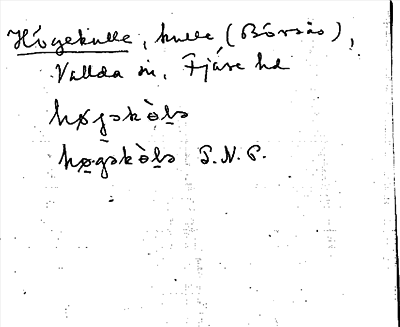 Högekulle, kulle (Börsås),
Vallda sn, Fjäre hd
høgskòls
hø̱gskòls P.N.P.